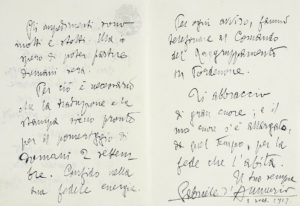 Gli argomenti sono
molti e
spero di poter partire
domani sera.
Per ciò è necessario
che la traduzione e la
stampa sieno pronte
per il pomeriggio di
domani 2 settem-
bre. Confido nella
tua fedele energia.
Per ogni avviso, fammi
telefonare al Comando
del Raggruppamento
in
Ti abbraccio
di gran cuore; e il
mio cuore s'è allargato,
da quel tempo, per la
fede che l'abita.
Il tuo sempre
Gabriele d'Annunzio
1917.